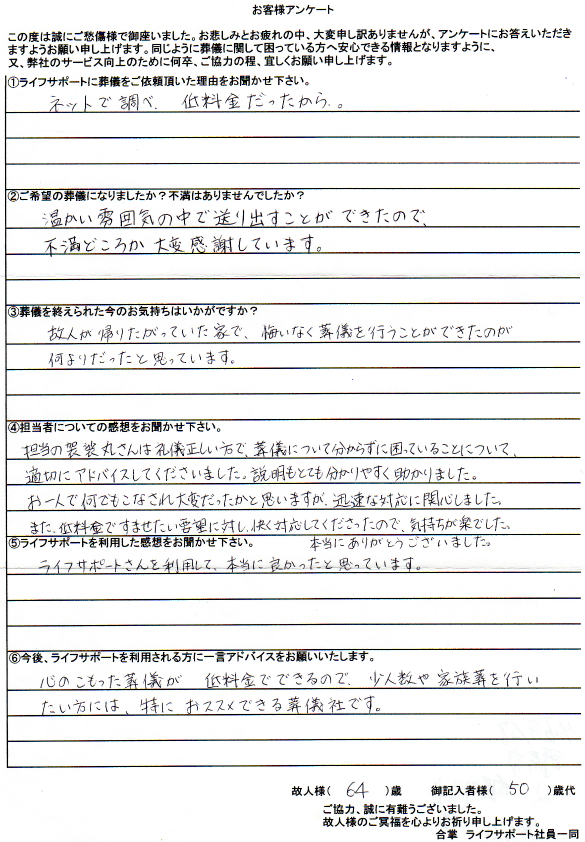 お客様アンケート
この度は誠にご愁傷様で御座いました。お悲しみとお疲れの中、大変申し訳ありませんが、アンケートにお答えいただき
ますようお願い申し上げます。同じように葬儀に関して困っている方へ安心できる情報となりますように、
又、弊社のサービス向上のために何卒、ご協力の程、宜しくお願い申し上げます。
①ライフサポートに葬儀をご依頼頂いた理由をお聞かせ下さい。
ネットで調べ、低料金だったから。
②ご希望の葬儀になりましたか？不満はありませんでしたか？
温かい雰囲気の中で送り出すことができたので、
不満どころか大変感謝しています。
③葬儀を終えられた今のお気持ちはいかがですか？
故人が帰りたがっていた家で、悔いなく葬儀を行うことができたのが
何よりだったと思っています。
④担当者についての感想をお聞かせ下さい。
担当の袈裟丸さんは礼儀正しい方で、葬儀について分からずに困っていることについて、
適切にアドバイスしてくださいました。説明もとても分かりやすく助かりました。
お一人で何でもこなされ大変だったかと思いますが、迅速な対応に関心しました。
また、低料金ですませたい要望に対し、快く対応してくださったので、気持ちが楽でした。
本当にありがとうございました。
⑤ライフサポートを利用した感想をお聞かせ下さい。
ライフサポートさんを利用して、本当に良かったと思っています。
⑥今後、ライフサポートを利用される方に一言アドバイスをお願いいたします。
心のこもった葬儀が 低料金でできるので、少人数や家族葬を行い
たい方には、特におススメできる葬儀社です。
故人様（ 64 ）歳 御記入者様（ 50 ）歳代
ご協力、誠に有難うございました。
故人様のご冥福を心よりお祈り申し上げます。
合掌 ライフサポート社員一同